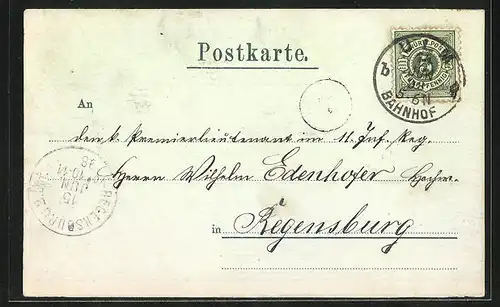 Postkarte.
ULM
BAHNHOF
An
den k. Premierlieutenant im 11. Inf. Reg.
Herrn Wilhelm Edenhofer Hochw.
in Regensburg
REGENSBURG
15
JUN
10-11